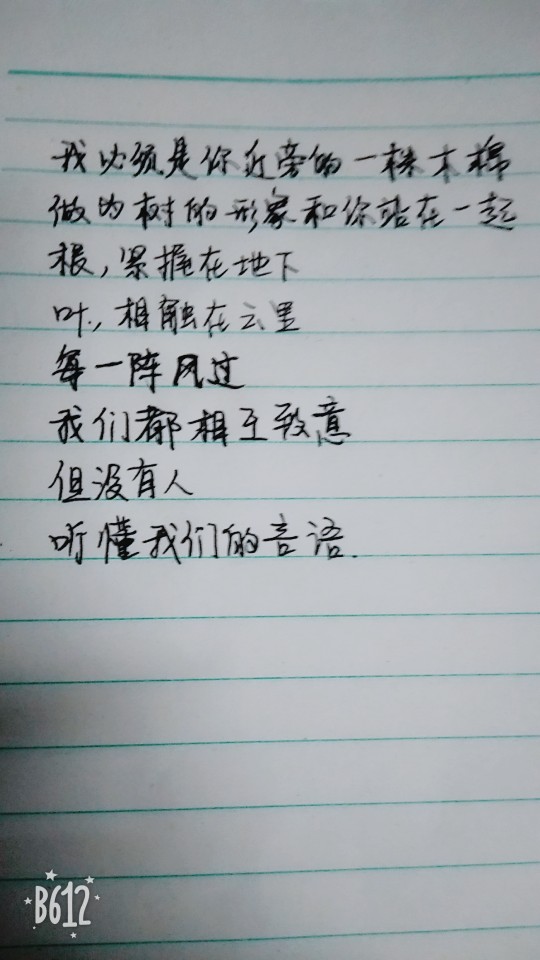 我必须是你近旁的一株木棉
做为树的形象和你站在一起
根，紧握在地下
叶，相触在云里
每一阵风过
我们都相互致意
但没有人
听懂我们的言语.
B612